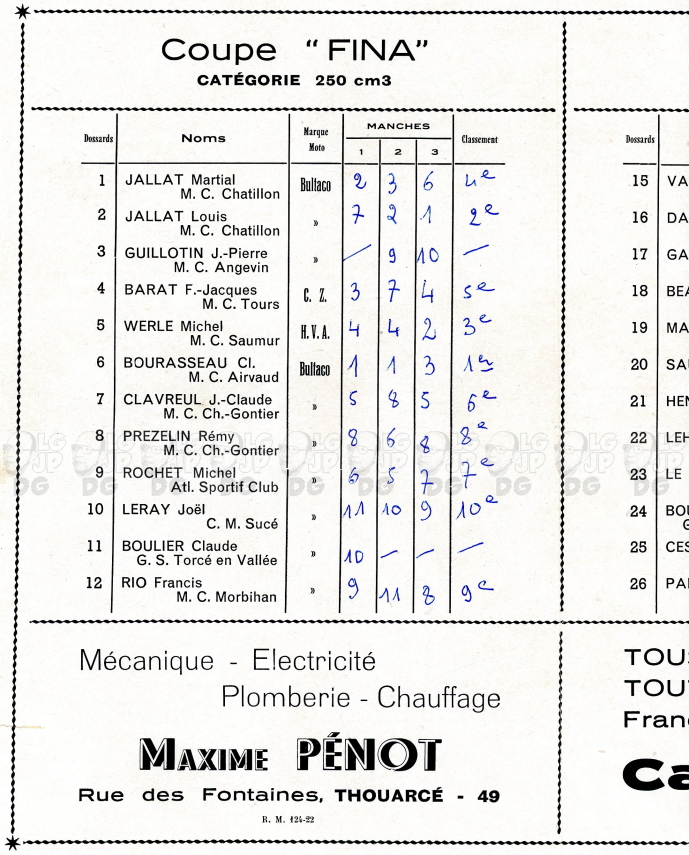 Coupe "FINA"
CATÉGORIE 250 cm3
Dossards Noms Marque Moto MANCHES 1 2 3 Classement
1 JALLAT Martial Bultaco 2 3 6 4e
M. C. Chatillon
2 JALLAT Louis » 7 2 1 2e
M. C. Chatillon
3 GUILLOTIN J.-Pierre » / 9 10 —
M. C. Angevin
4 BARAT F.-Jacques C. Z. 3 7 4 5e
M. C. Tours
5 WERLE Michel H.V.A. 4 4 2 3e
M. C. Saumur
6 BOURASSEAU Cl. Bultaco 1 1 3 1er
M. C. Airvaud
7 CLAVREUL J.-Claude » 5 8 5 6e
M. C. Ch.-Gontier
8 PREZELIN Rémy » 8 6 8 8e
M. C. Ch.-Gontier
9 ROCHET Michel » 6 5 7 7e
Atl. Sportif Club
10 LERAY Joël » 11 10 9 10e
C. M. Sucé
11 BOULIER Claude » 10 — — —
G. S. Torcé en Vallée
12 RIO Francis » 9 11 8 9e
M. C. Morbihan
Mécanique - Electricité
Plomberie - Chauffage
MAXIME PÉNOT
Rue des Fontaines, THOUARCÉ - 49
R. M. 124-22
Dossards
15 VA
16 DA
17 GA
18 BEA
19 MA
20 SAU
21 HEN
22 LEH
23 LE
24 BOU
G
25 CES
26 PAI
TOUS
TOUT
Fran
Ca
LG JP DG